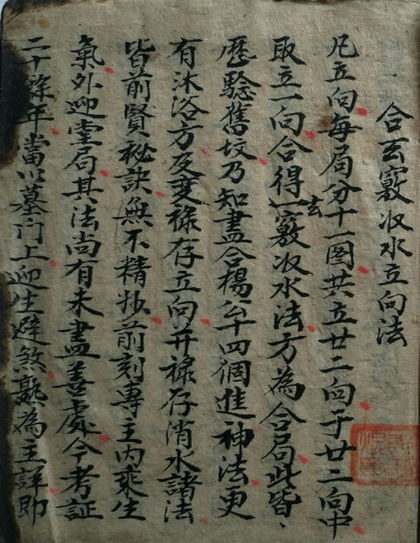 合玄竅収水立向法
凡立向每局分十一图共立廿二向于廿二向中
取立一向合得一玄竅収水法方為合局此皆
歷驗舊坟乃知盡合楊公十四個進神法更
有沐浴方及棄祿存立向并祿存消水諸法
皆前賢秘訣無不精妙前刻專主內乘生
氣外迎堂局其法尚有未盡善處今考証
二十餘年當以墓門上迎生避煞熟為主詳即